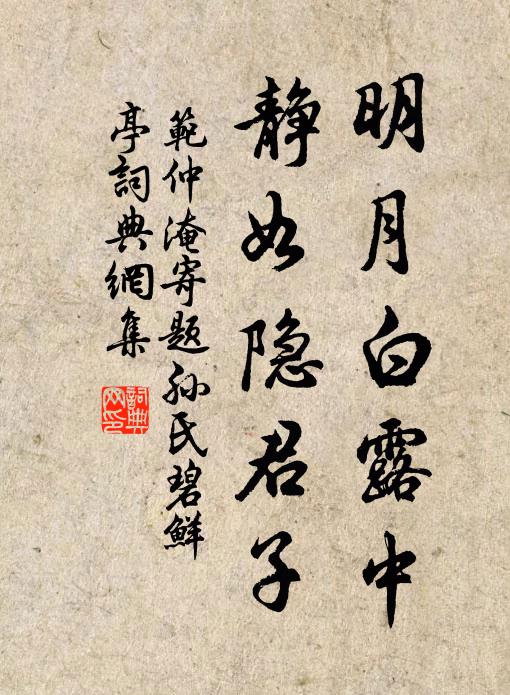 明月白露中
静如隐君子
範仲淹寄题孙氏碧鲜
亭詞典網集
詞典
网印